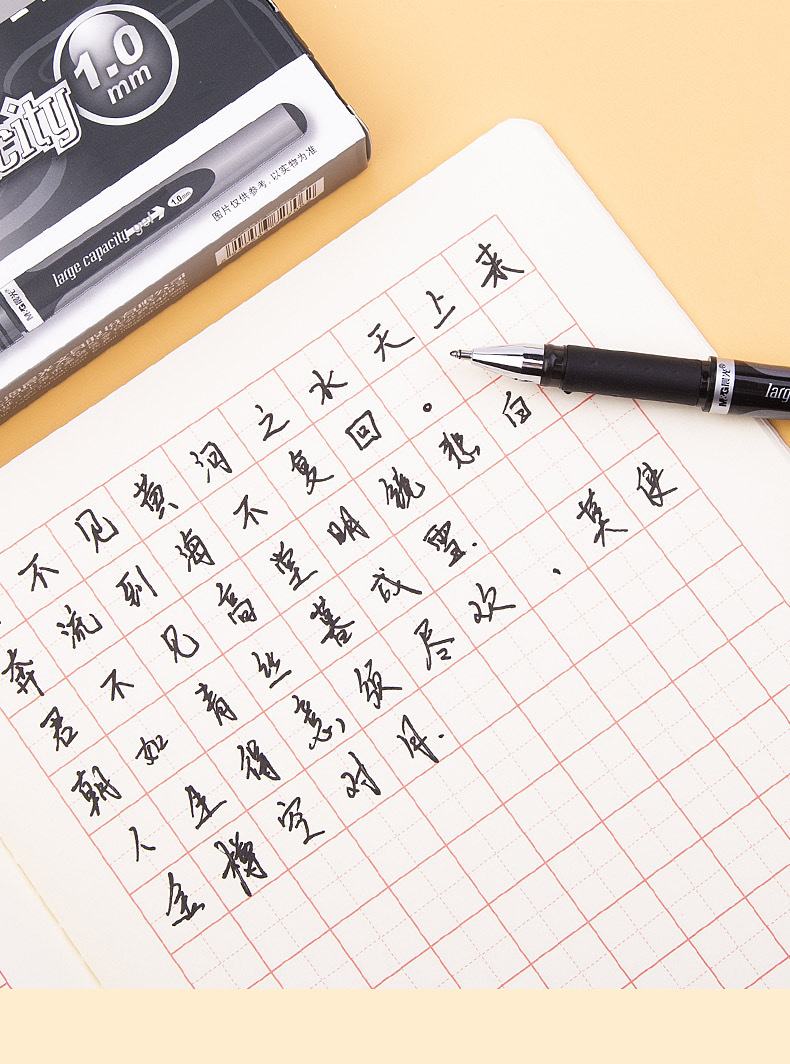 1.0
mm
city
1.0mm
large capacity gel
M&G晨光
图片仅供参考，以实物为准
不见黄河之水天上来
奔流到海不复回。
君不见高堂明镜悲白
朝如青丝暮成雪.
人生得意须尽欢，莫使
金樽空对月.
M&G晨光®
larg